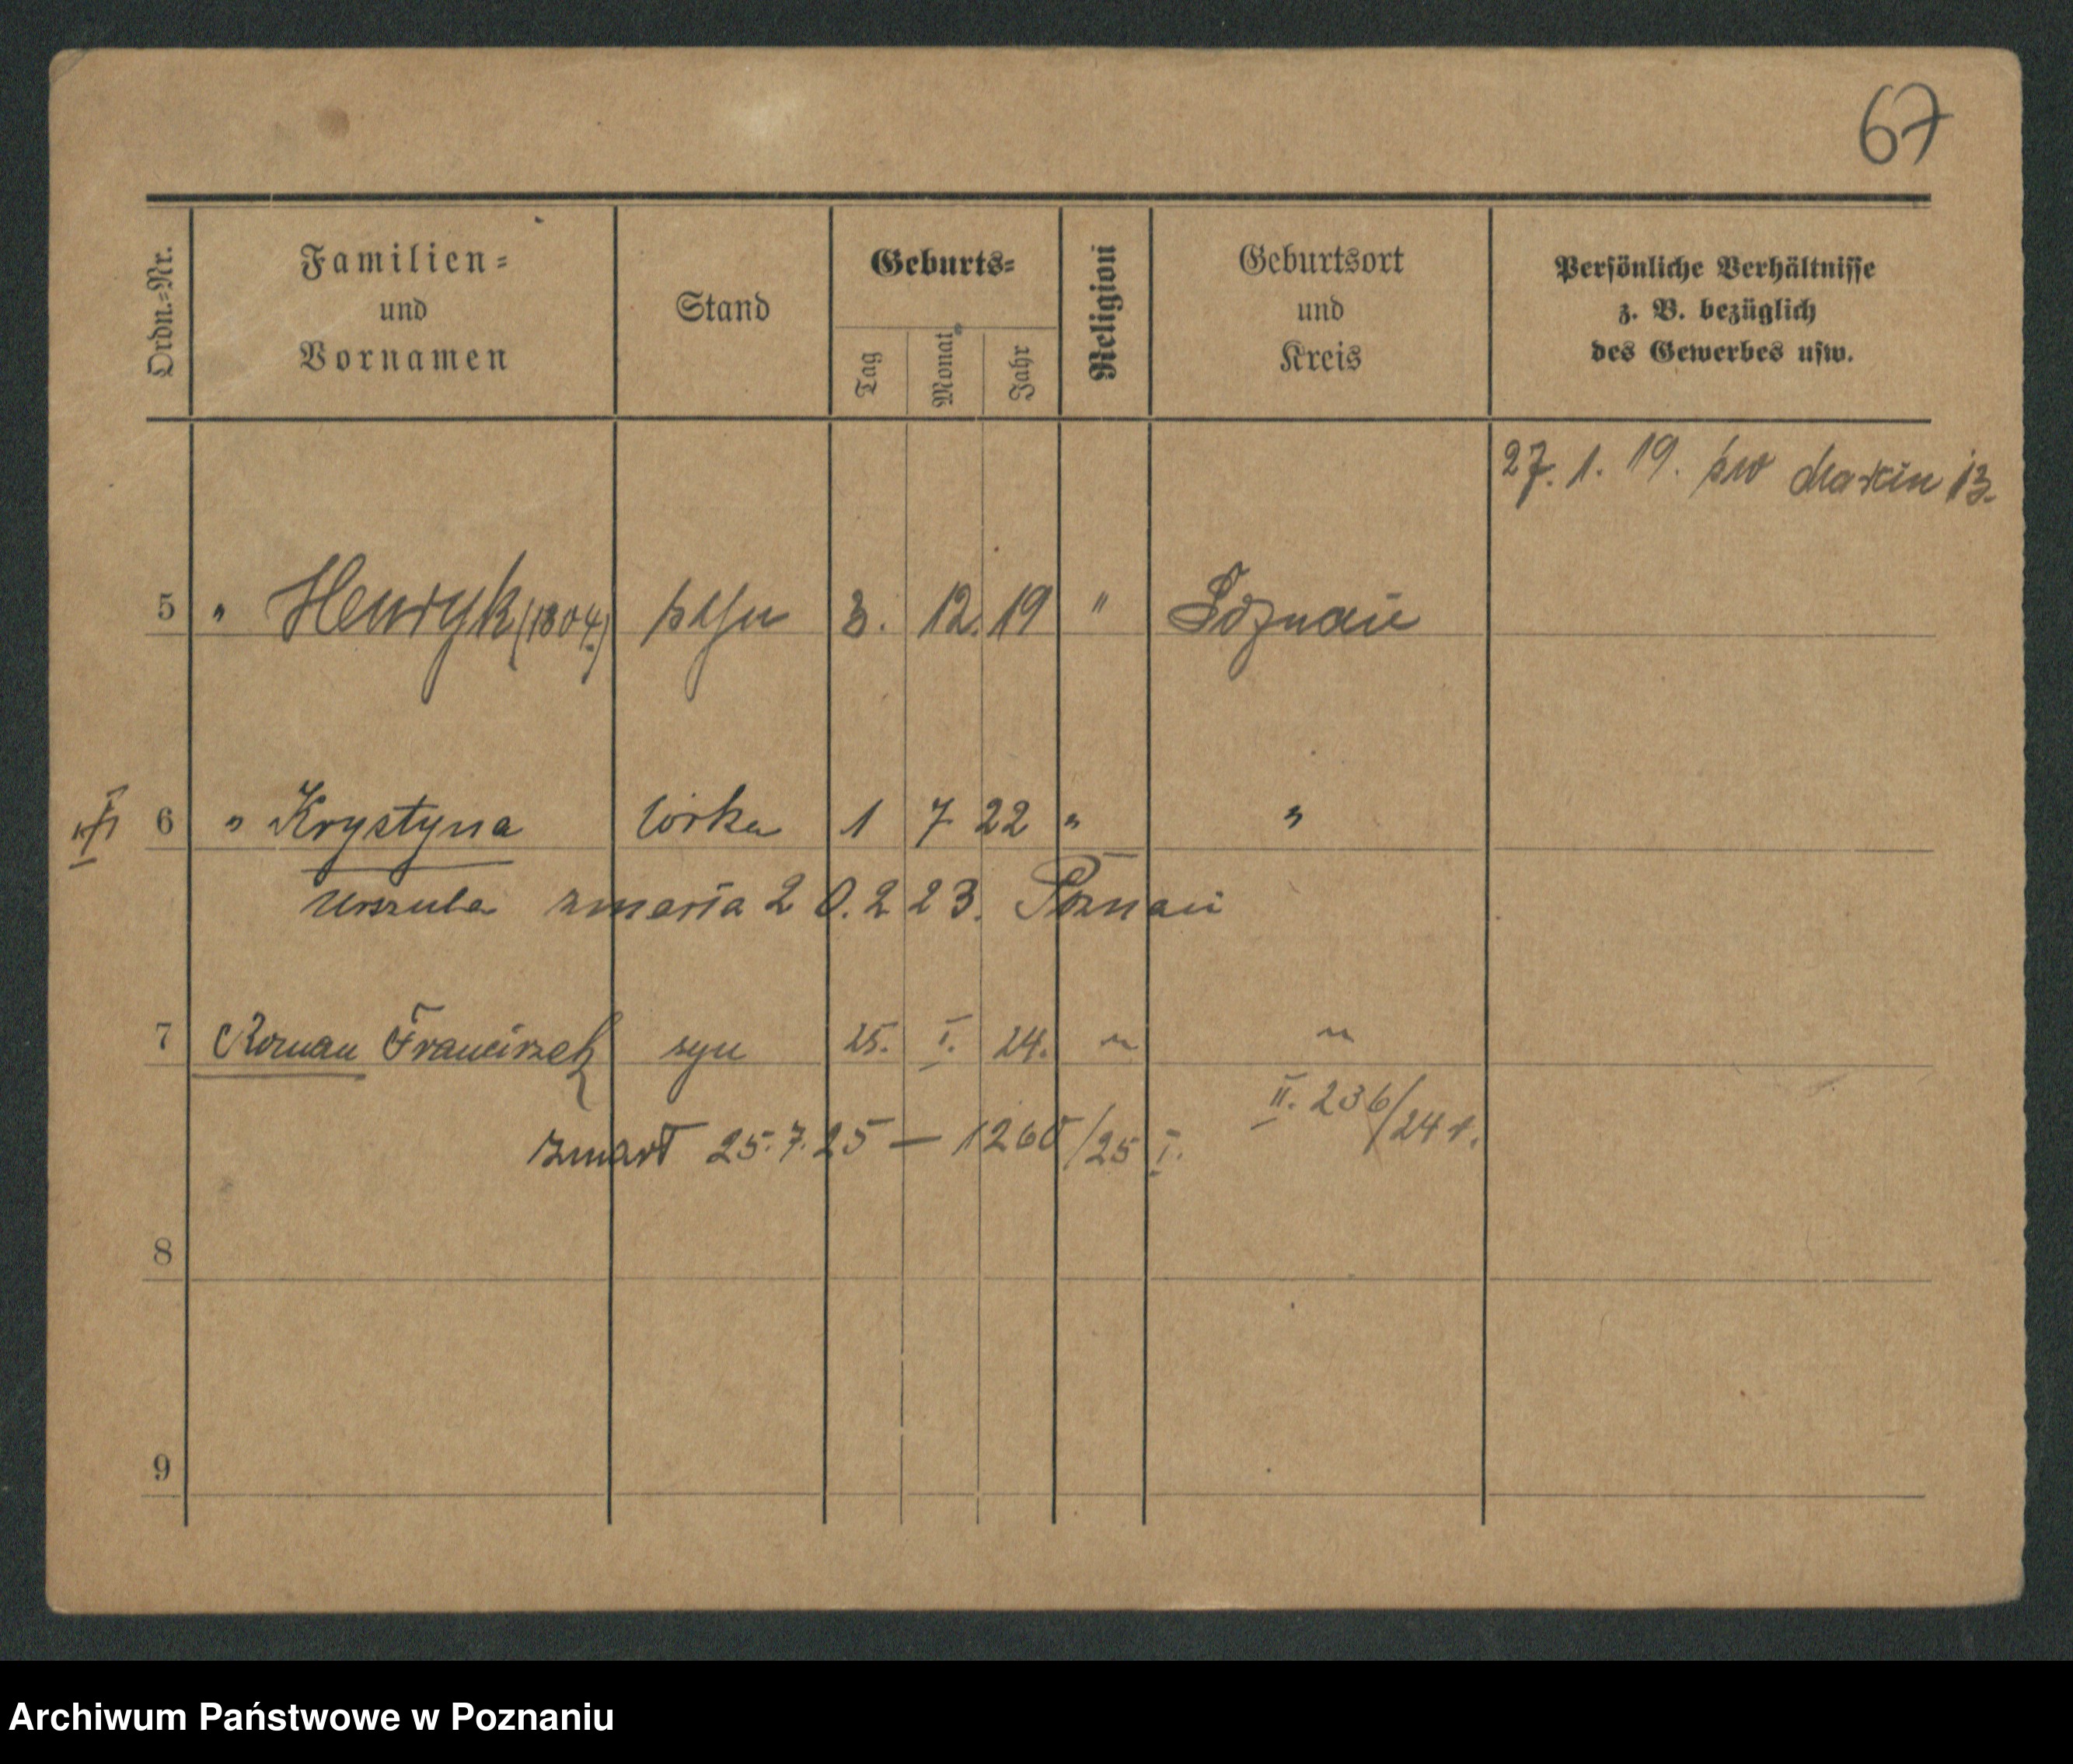 67
Ordn.=Nr. Familien= und Vornamen Stand Geburts= Tag Monat Jahr Religion Geburtsort und Kreis Persönliche Verhältnisse z. B. bezüglich des Gewerbes usw.
27. 1. 19. św Marcin 13.
5 " Henryk (1804) syn 3. 12. 19 " Poznań
6 " Krystyna córka 1 7 22 " "
Urszula zmarła 20. 2 23. Poznań
7 Roman Franciszek syn 25. I. 24. " "
II. 236/24 r.
zmarł 25. 7. 25 — 1260/25 I.
8
9
Archiwum Państwowe w Poznaniu